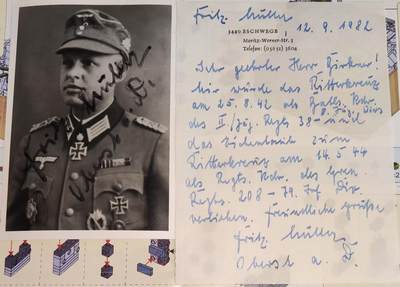 Fritz Müller
Oberst a. D.
Fritz Müller
12. 9. 1982
3440 ESCHWEGE
Moritz-Werner-Str. 3
Telefon: (05651) 3604
Sehr geehrter Herr
Mir wurde das Ritterkreuz
am 25. 8. 42 als Batls. Kdr.
des II/Jäg. Regts 38 - 8. Jäg. Div.
und
das Eichenlaub zum
Ritterkreuz am 14. 5. 44
als Regts. Kdr. des Gren.
Regts. 208 - 79. Inf. Div.
verliehen. Freundliche Grüße
Fritz Müller
Oberst a. D.